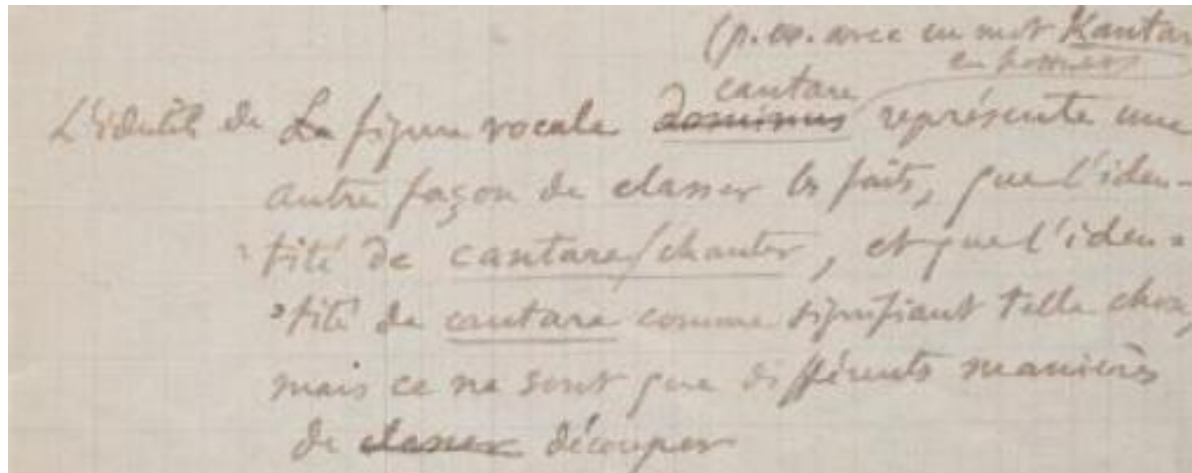 (p. ex. avec un mot Kantar
en
cantare
L'identité de La figure vocale dominus représente une
autre façon de classer les faits, que l'iden-
tité de cantare/chanter, et que l'iden-
tité de cantare comme signifiant telle chose,
mais ce ne sont que différents manières
de classer découper